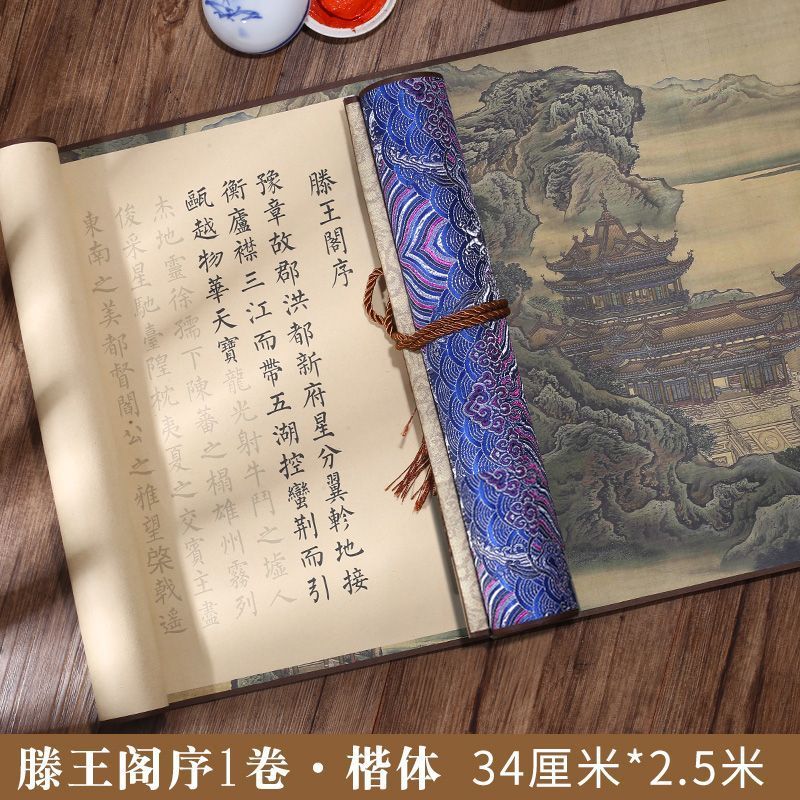 滕王閣序
豫章故郡洪都新府星分翼軫地接
衡廬襟三江而帶五湖控蠻荊而引
甌越物華天寶龍光射牛鬥之墟人
杰地靈徐孺下陳蕃之榻雄州霧列
俊采星馳臺隍枕夷夏之交賓主盡
東南之美都督閻公之雅望棨戟遙
滕王阁序1卷·楷体 34厘米*2.5米